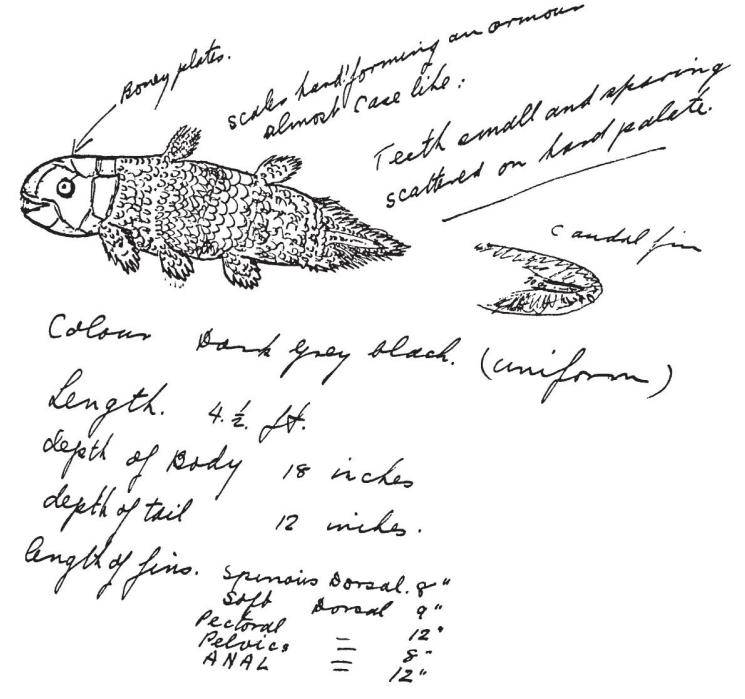 Boney plates.
scales hard! forming an armour
almost case like:
Teeth small and sparing
scattered on hard palate.
Caudal fin
Colour Dark grey black. (uniform)
Length. 4.½. ft.
depth of Body 18 inches
depth of tail 12 inches.
length of fins. Spinous Dorsal. 8"
Soft Dorsal 9"
Pectoral 12"
Pelvics = 8"
ANAL = 12"